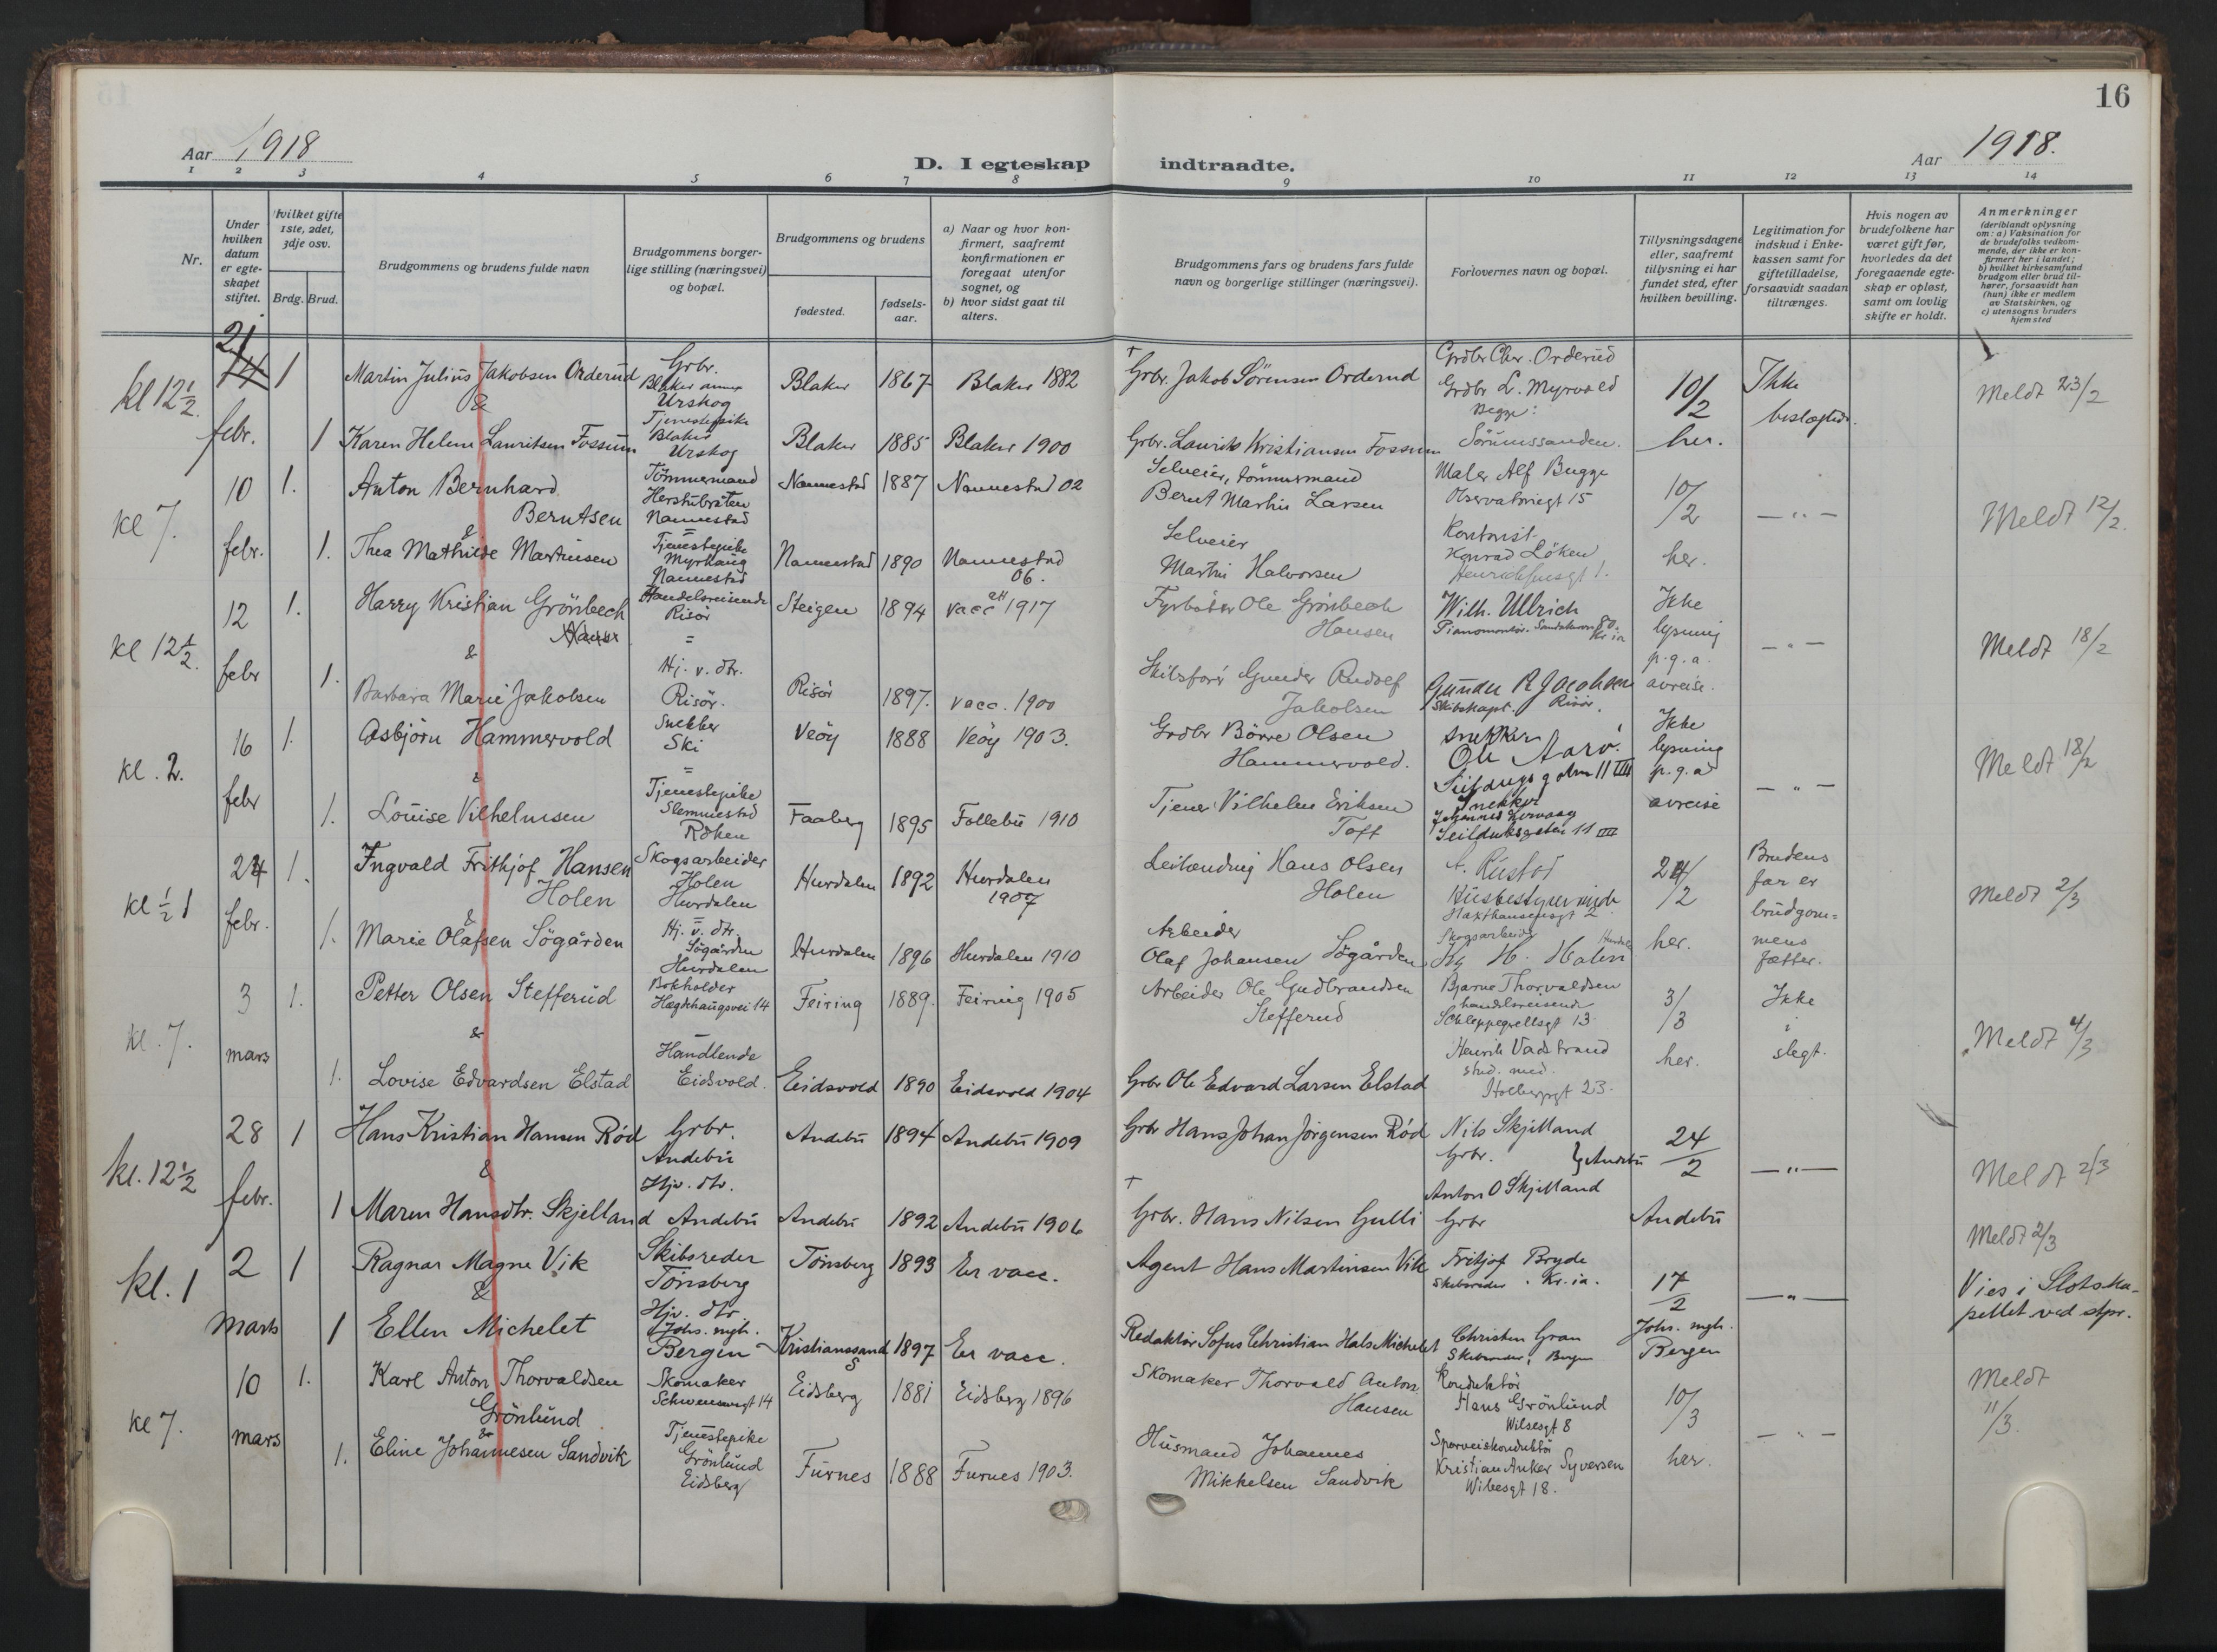 16
Aar 1918
D. I egteskap indtraadte.
Aar 1918.
1 2 3 4 5 6 7 8 9 10 11 12 13 14
Nr.
Under hvilken datum er egteskapet stiftet.
Hvilket gifte 1ste, 2det, 3dje osv.
Brdg. Brud.
Brudgommens og brudens fulde navn
Brudgommens borgerlige stilling (næringsvei) og bopæl.
Brudgommens og brudens
fødested.
fødselsaar.
a) Naar og hvor konfirmert, saafremt konfirmationen er foregaat utenfor sognet, og
b) hvor sidst gaat til alters.
Brudgommens fars og brudens fars fulde navn og borgerlige stillinger (næringsvei).
Forlovernes navn og bopæl.
Tillysningsdagene eller, saafremt tillysning ei har fundet sted, efter hvilken bevilling.
Legitimation for indskud i Enkekassen samt for giftetilladelse, forsaavidt saadan tiltrænges.
Hvis nogen av brudefolkene har været gift før, hvorledes da det foregaaende egteskap er opløst, samt om lovlig skifte er holdt.
Anmerkninger
(deriblandt oplysning om: a) Vaksination for de brudefolks vedkommende, der ikke er konfirmert her i landet; b) hvilket kirkesamfund brudgom eller brud tilhører, forsaavidt han (hun) ikke er medlem av Statskirken, og c) utensogns bruders hjemsted
kl 12½.
21
febr.
1
Martin Julius Jakobsen Orderud
&
Grbr.
Blaker annex
Urskog
Blaker 1867 Blaker 1882
† Grbr. Jakob Sörensen Orderud
Grdbr Chr. Orderud
Grdbr L. Myrvold
Begge:
Sörumssanden.
10/2
her.
Ikke
beslegtede
Meldt 23/2
1 Karen Helene Lauritsen Fossum
Tjenestepike
Blaker
Urskog
Blaker 1885 Blaker 1900
Grbr. Laurits Kristiansen Fossum
kl 7.
10
febr.
1.
Anton Bernhard
Berntsen
&
Tömmermand
Herstubråten
Nannestad
Nannestad 1887 Nannestad 02
Selveier, tömmermand
Bernt Martin Larsen
Maler Alf Bugge
Observatoriegt 15
10/2
her.
— " —
Meldt 12/2.
1. Thea Mathilde Martinsen
=
Tjenestepike
Myrhaug
Nannestad
Nannestad 1890 Nannestad
06.
Selveier
Martin Halvorsen
Kontorist
Konrad Löken
kl 12½.
12
febr
1.
Harry Kristian Grönbech
&
Handelsreisende
Risör
=
Steigen 1894 vacc 1917
Fyrböter Ole Grönbech
Hansen
Wilh. Ullrich
Ikke
lysning
p.g.a.
avreise.
— " —
Meldt 18/2
1.
Barbara Marie Jakobsen
Hj. v. dtr.
Risör.
Risör 1897. vacc. 1900
Skibsförer Gunder Rudolf
Jakobsen
Gunder R Jacobsen
Skibskapt. Risör.
kl. 2.
16
febr
1.
Asbjörn Hammervold
&
Snekker
Ski
=
Veöy 1888 Veöy 1903.
Grdbr Börre Olsen
Hammervold.
snekker
Ole Aarö.
Ikke
lysning
p.g.a
avreise
— " —
Meldt 18/2
1. Louise Vilhelmsen
Tjenestepike
Slemmestad
Röken
Faaberg 1895 Follebu 1910
Tjener Vilhelm Eriksen
Toft
Snekker
Seilduksgaten 11 III
kl ½ 1
24
febr.
1.
Ingvald Frithjof Hansen
Holen
&
Skogsarbeider
Holen
Hurdalen
Hurdalen 1892 Hurdalen
1907
Leilænding Hans Olsen
Holen
A. Rustad
Haxthausensgt 2
24/2
her.
Brudens
far er
brudgom=
mens
fætter.
Meldt 2/3
1. Marie Olafsen Sögården
=
Hj. v. dtr.
Sögården
Hurdalen
Hurdalen 1896 Hurdalen 1910
Arbeider
Olaf Johansen Sögården
Skogsarbeider
H. Holen
kl. 7.
3
mars
1.
Petter Olsen Stefferud
&
Bokholder
Hægdehaugsvei 14
Feiring 1889. Feiring 1905
Arbeider Ole Gudbrandsen
Stefferud
Bjarne Thorvaldsen
handelsreisende
Schleppegrellsgt 13
3/3
her.
Ikke
i
slegt.
Meldt 4/3
1. Lovise Edvardsen Elstad
Handlende
Eidsvold.
Eidsvold 1890 Eidsvold 1904
Grbr Ole Edvard Larsen Elstad
Henrik Vadstrand
stud. med.
Holbergsgt 23.
kl. 12½
28
febr.
1
Hans Kristian Hansen Röd
&
Grbr.
Andebu
Andebu 1894 Andebu 1909
Grbr Hans Johan Jörgensen Röd
Nils Skjelland
Grbr.
} Andebu
24/2
Andebu
— " —
Meldt 2/3
1 Maren Hansdtr. Skjelland
Hjv. dtr.
Andebu
Andebu 1892 Andebu 1906
† Grbr. Hans Nilsen Gulli
Anton O Skjelland
Grbr
kl. 1
2
Mars
1
Ragnar Magne Vik
&
Skibsreder
Tönsberg
Tönsberg 1893 Er vacc.
Agent Hans Martinsen Vik
Fritjof Bryde
Skibsreder. Kr.ia.
17/2
Johs. mgh.
Bergen
— " —
Meldt 2/3
Vies i Slotska-
pellet ved spr.
1 Ellen Michelet
Hjv. dtr
Johs. mgh.
Bergen
Kristianssand S 1897 Er vacc.
Redaktör Sofus Christian Hals Michelet
Christen Gran
Skibsreder, Bergen
kl 7.
10
mars
1.
Karl Anton Thorvaldsen
Grönlund
&
Skomaker
Schwensensgt 14
Eidsberg 1881 Eidsberg 1896
Skomaker Thorvald Anton
Hansen
Konduktör
Hans Grönlund
Wilsesgt 8
10/3
her.
— " —
Meldt
11/3.
1. Eline Johannesen Sandvik
Tjenestepike
Grönlund
Eidsberg
Furnes 1888 Furnes 1903.
Husmand Johannes
Mikkelsen Sandvik
Sporveiskonduktör
Kristian Anker Syversen
Wibesgt 18.